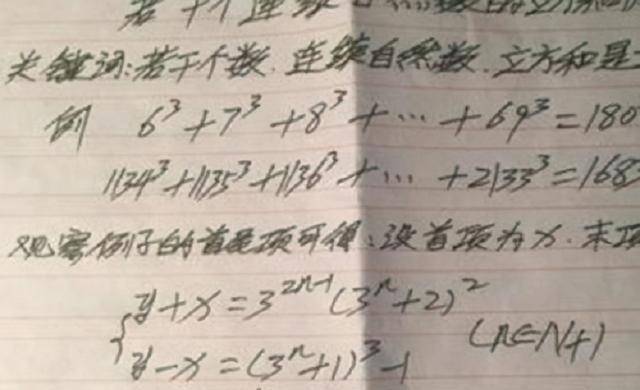 若干个连续自然数的立方和
关键词:若干个数.连续自然数.立方和是
例 6³+7³+8³+⋯+69³=180
1134³+1135³+1136³+⋯+2133³=168
观察例子的首尾项可得:设首项为x.末项
{y+x=3²ⁿ⁻¹(3ⁿ+2)²
y-x=(3ⁿ+1)³-1 (n∈N+)